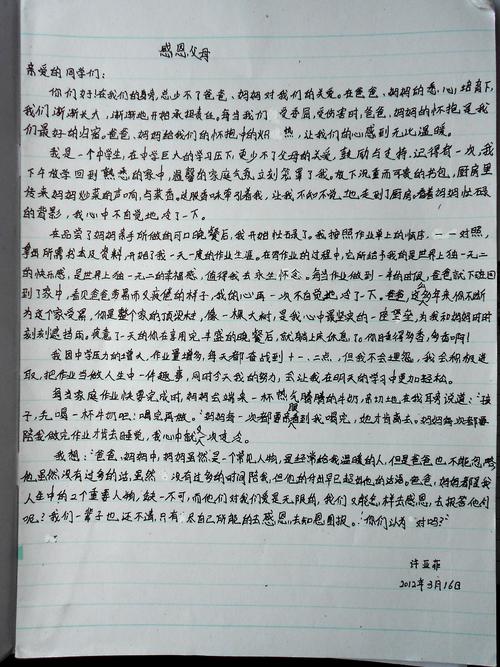 感恩父母
亲爱的同学们：
你们好！在我们的身旁，总少不了爸爸、妈妈对我们的关爱。在爸爸、妈妈的悉心培育下，
我们渐渐长大，渐渐地开始承担责任。每当我们受委屈，受伤害时，爸爸、妈妈的怀抱是我
们最好的归宿。爸爸、妈妈给我们的怀抱中的炽热，让我们的心感到无比温暖。
我是一个中学生，在中学巨大的学习压下，更少不了父母的关爱，鼓励与支持。记得有一次，我
下午放学回到熟悉的家中，温馨的家庭气氛立刻笼罩了我。放下沉重而可贵的书包，厨房里
传来妈妈炒菜的声响，与菜香。这股香味牵引着我，让我不知不觉地走到了厨房。看着妈妈忙碌
的背影，我心中不自觉地凉了一下。
在品尝了妈妈亲手所做的可口晚餐后，我开始忙碌了。我按照作业单上的顺序，一一对照，
拿出所需书本及资料，开始了我一天一度的作业生涯。在写作业的过程中，它所给予我的是世界上独一无二
的快乐感，是世界上独一无二的幸福感，值得我去永生怀念。每当作业做到一半的时候，爸爸就下班回
到了家中，看见爸爸劳累而又疲惫的样子，我的心再一次不自觉地凉了下。爸爸，这么多年来你不断
为这个家受累，你是整个家的顶梁柱，像一棵大树，是我心中最坚实的一座堡垒，为我和妈妈时时
刻刻遮挡雨。疲惫了一天的你在享用完丰盛的晚餐后，就躺上床休息了。你睡得多香，多甜啊！
我因中学压力的增大，作业量增多，每天都奋战到十一、二点，但我不会埋怨，我会积极进
取，把作业当做人生中一件趣事，同时今天我的努力，会让我在明天的学习中更加轻松。
每当家庭作业快要完成时，妈妈会端来一杯热气腾腾的牛奶，亲切地在我耳旁说道：“孩
子，先喝一杯牛奶吧！喝完再做。”妈妈每一次都要看到我喝完，她才肯离去。妈妈每次都要
陪我做完作业才肯去睡觉，我心中就又一次凉凉。
我想：“爸爸、妈妈中，妈妈虽然是一个常见人物，是经常给我温暖的人，但是爸爸也不能忽略
他虽然没有过多的话，虽然没有过多的时间陪我，但他的付出早已超出他的话语。爸爸，妈妈都是我
人生中的2个重要人物，缺一不可，而他们对我们爱是无限的，我们又能怎样去感恩，去报答他们
呢？我们一辈子也还不清，只有尽自己所能的去感恩，去知恩图报。”你们认为对吗？”
许亚菲
2012年3月16日